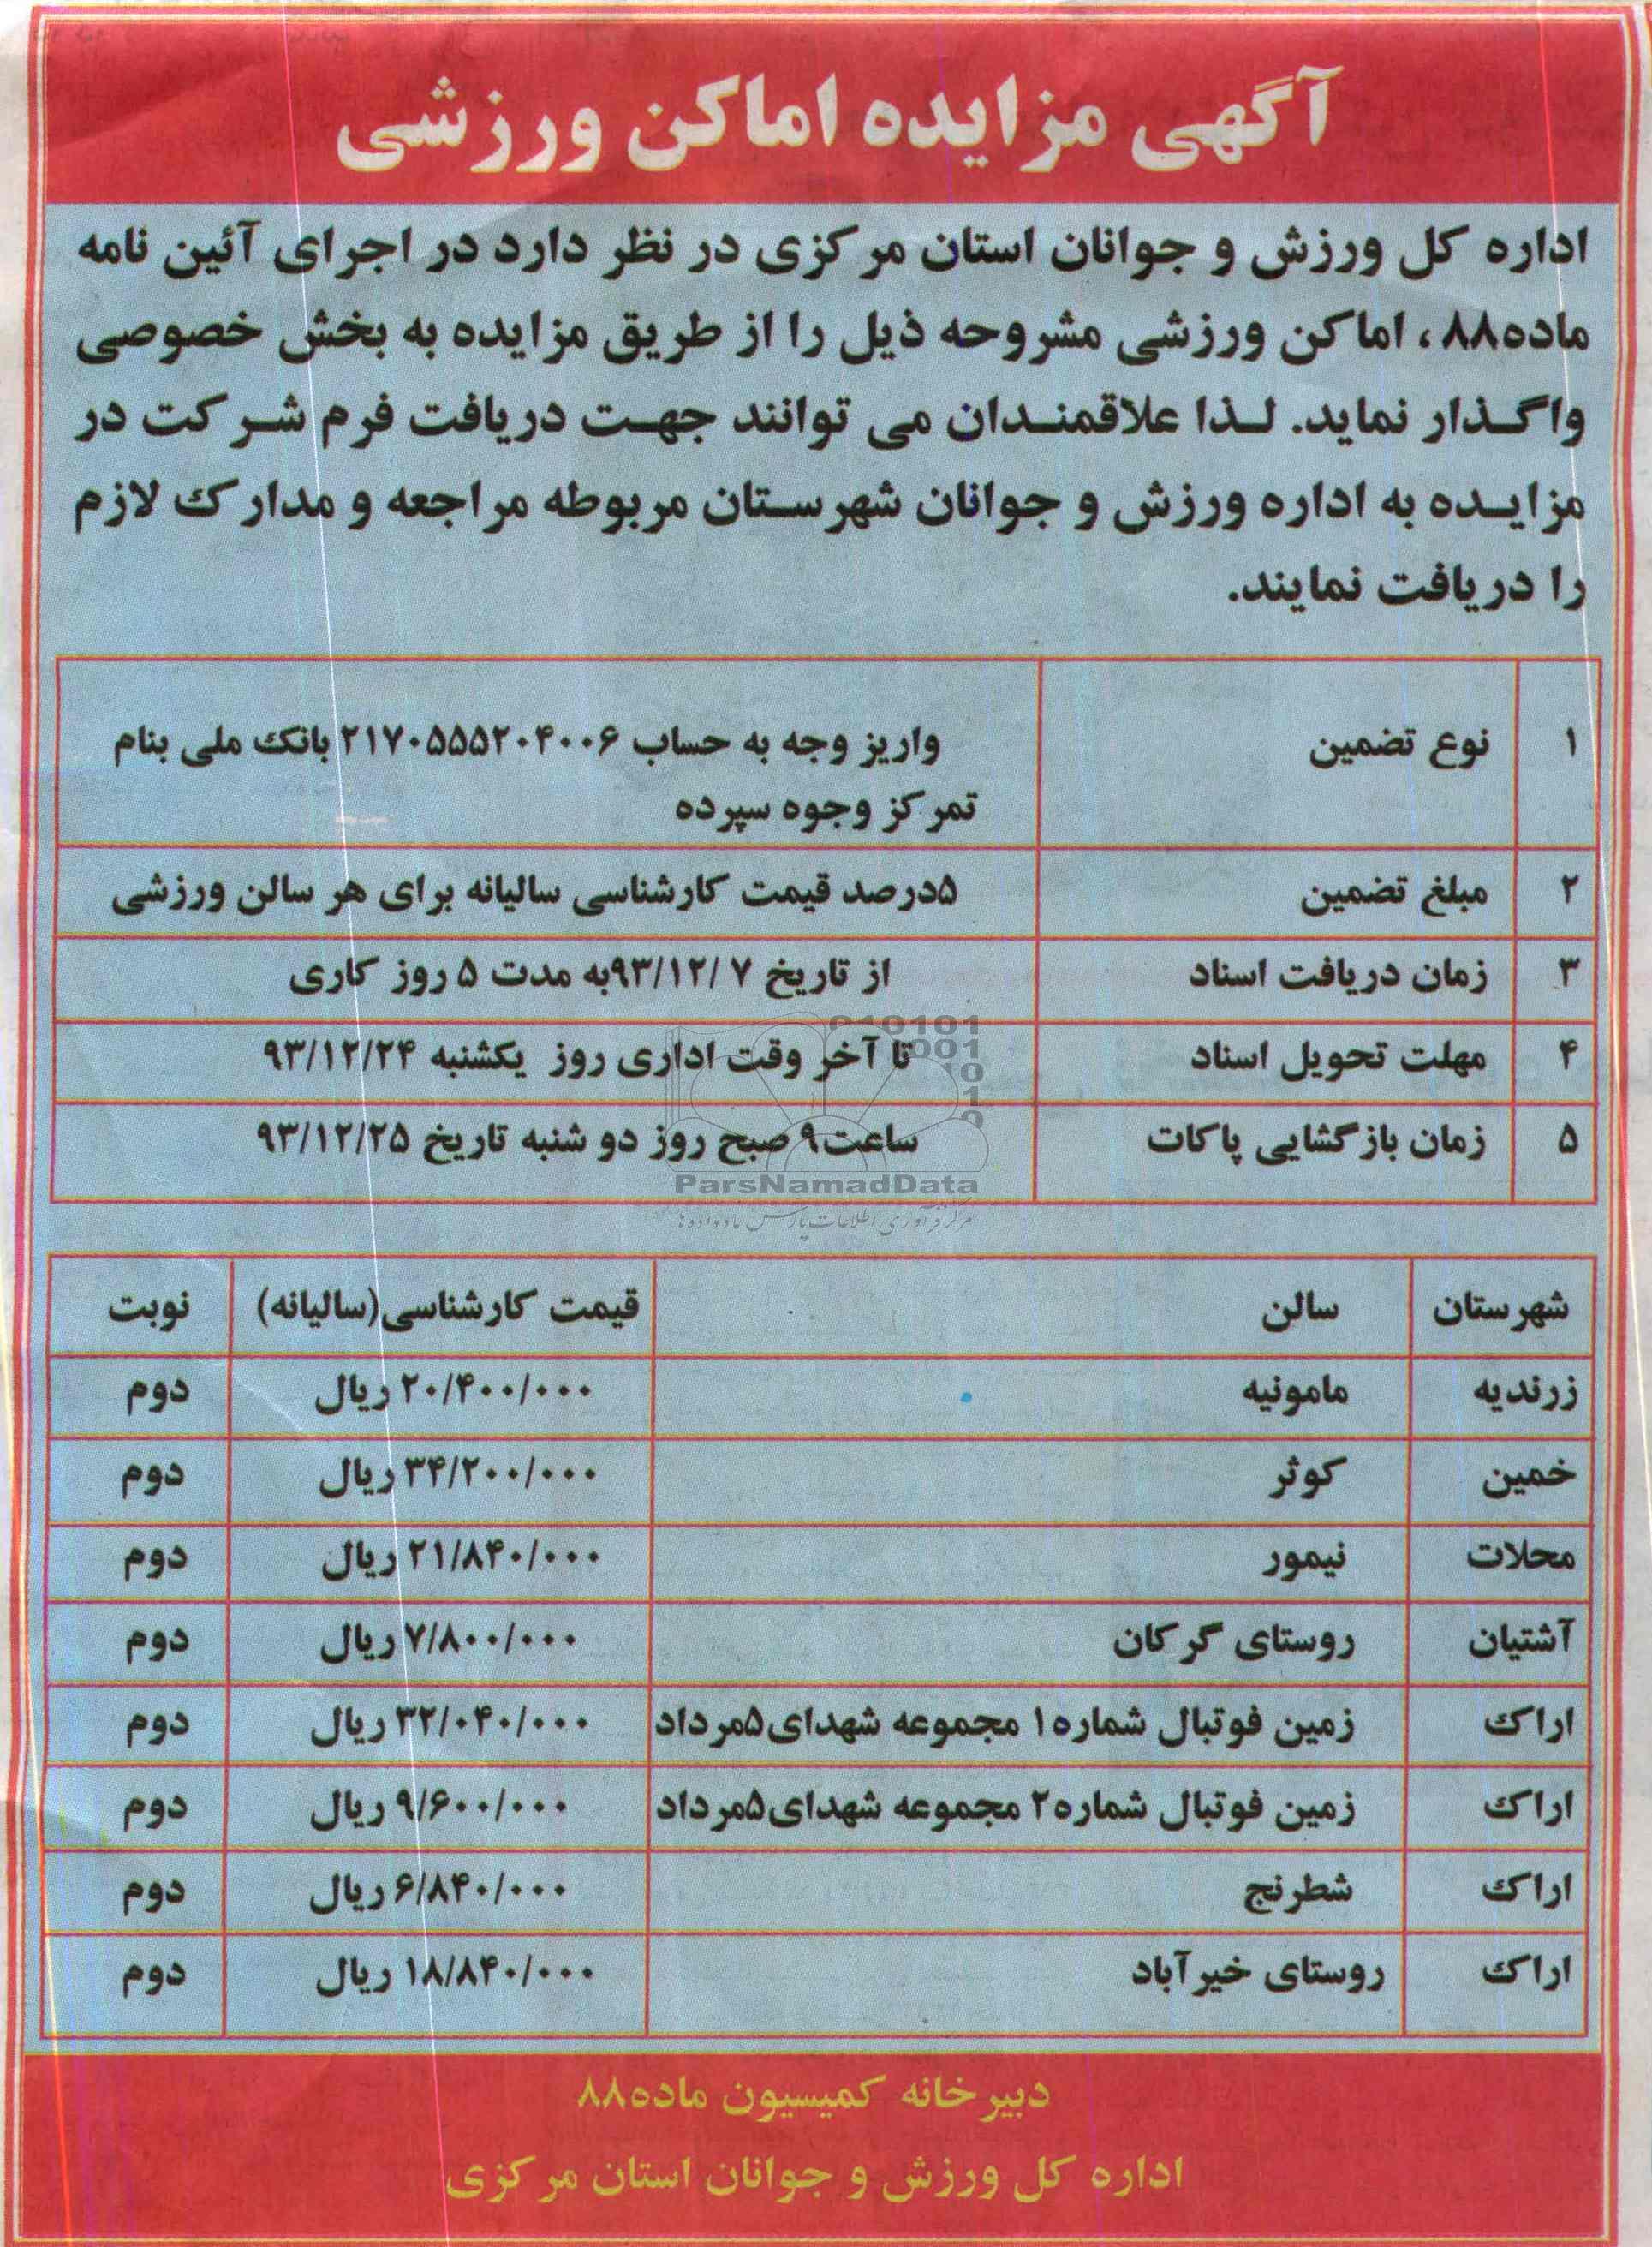 آگهی مزایده اماکن ورزشی
اداره کل ورزش و جوانان استان مرکزی در نظر دارد در اجرای آئین نامه
ماده۸۸، اماکن ورزشی مشروحه ذیل را از طریق مزایده به بخش خصوصی
واگذار نماید. لذا علاقمندان می توانند جهت دریافت فرم شرکت در
مزایده به اداره ورزش و جوانان شهرستان مربوطه مراجعه و مدارک لازم
را دریافت نمایند.
۱ نوع تضمین واریز وجه به حساب ۲۱۷۰۵۵۵۲۰۴۰۰۶ بانک ملی بنام
تمرکز وجوه سپرده
۲ مبلغ تضمین ۵درصد قیمت کارشناسی سالیانه برای هر سالن ورزشی
۳ زمان دریافت اسناد از تاریخ ۹۳/۱۲/۷به مدت ۵ روز کاری
۴ مهلت تحویل اسناد تا آخر وقت اداری روز یکشنبه ۹۳/۱۲/۲۴
۵ زمان بازگشایی پاکات ساعت۹ صبح روز دو شنبه تاریخ ۹۳/۱۲/۲۵
ParsNamadData
مرکز فرآوری اطلاعات پارس نماد داده ها
شهرستان سالن قیمت کارشناسی(سالیانه) نوبت
زرندیه مامونیه ۲۰/۴۰۰/۰۰۰ ریال دوم
خمین کوثر ۳۴/۲۰۰/۰۰۰ ریال دوم
محلات نیمور ۲۱/۸۴۰/۰۰۰ ریال دوم
آشتیان روستای گرکان ۷/۸۰۰/۰۰۰ ریال دوم
اراک زمین فوتبال شماره۱ مجموعه شهدای۵مرداد ۳۲/۰۴۰/۰۰۰ ریال دوم
اراک زمین فوتبال شماره۲ مجموعه شهدای۵مرداد ۹/۶۰۰/۰۰۰ ریال دوم
اراک شطرنج ۶/۸۴۰/۰۰۰ ریال دوم
اراک روستای خیرآباد ۱۸/۸۴۰/۰۰۰ ریال دوم
دبیرخانه کمیسیون ماده۸۸
اداره کل ورزش و جوانان استان مرکزی